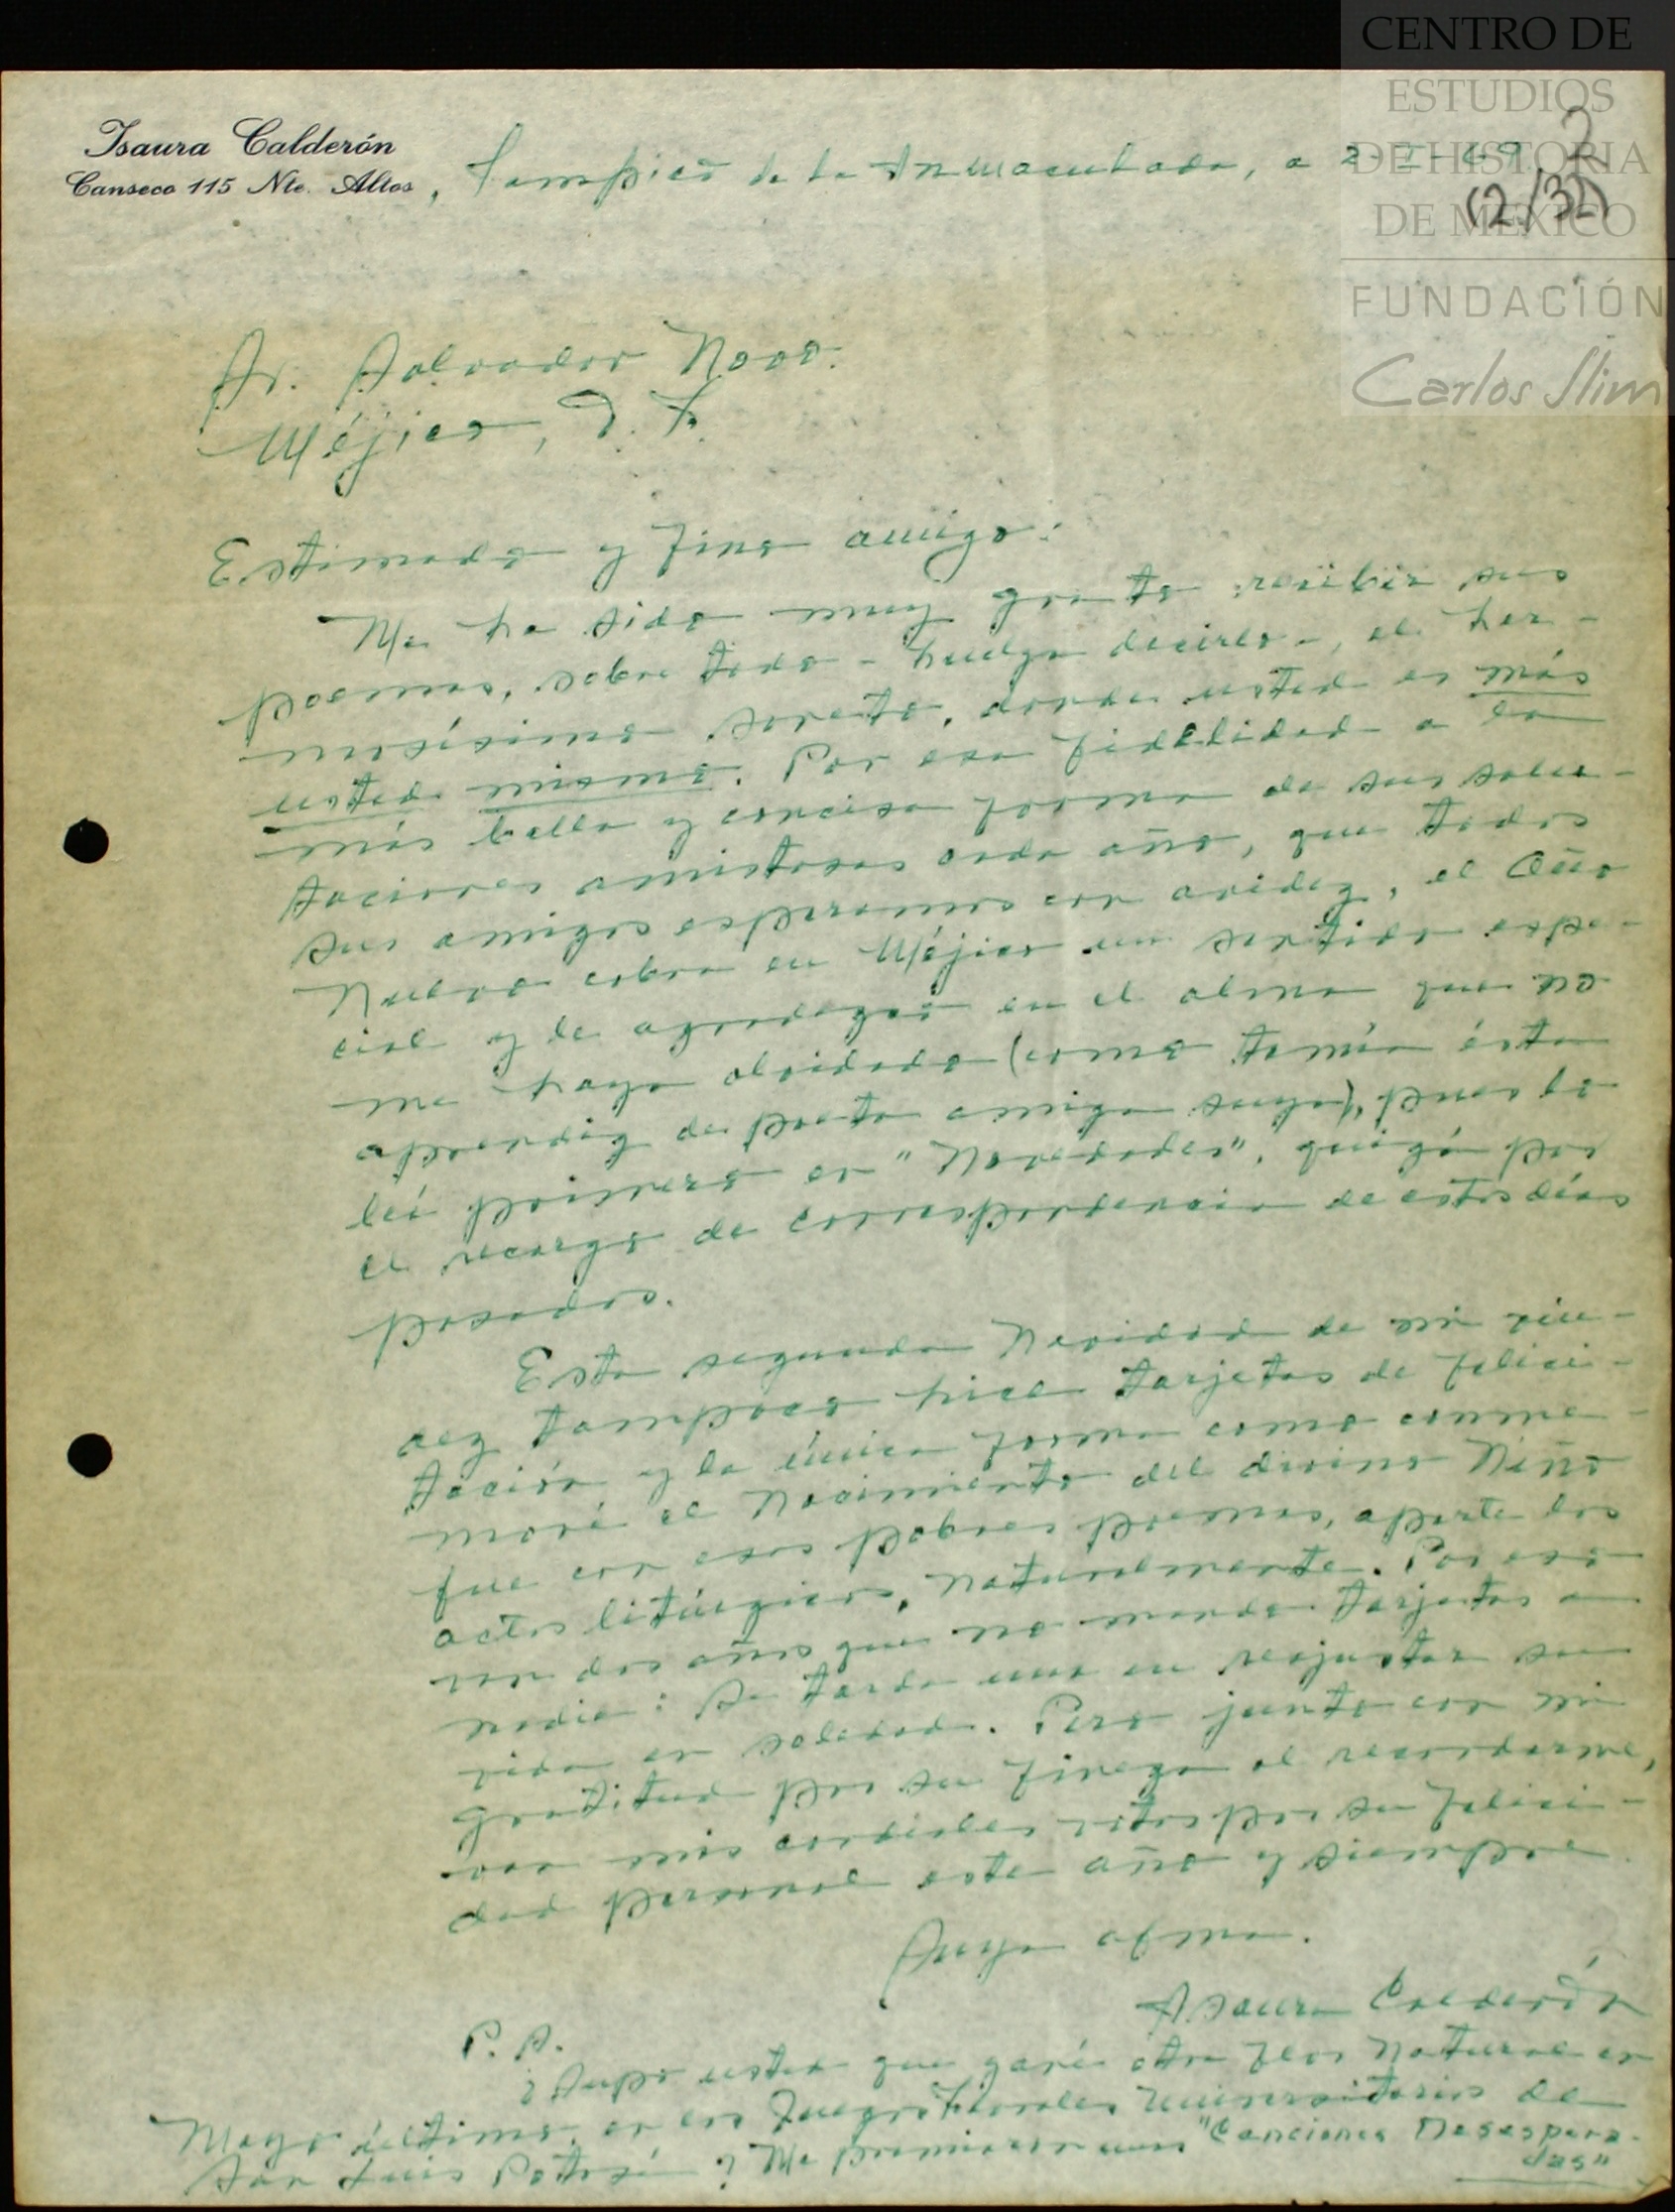 CENTRO DE
ESTUDIOS
DE HISTORIA
DE MÉXICO
FUNDACIÓN
Carlos Slim
Isaura Calderón
Canseco 115 Nte. Altos, Tampico de la Inmaculada, a 2-I-69
2
(2/32)
Sr. Salvador Novo.
Méjico, D. F.
Estimado y fino amigo:
Me ha sido muy grato recibir sus
poemas, sobre todo - huelga decirlo -, el her-
mosísimo soneto, donde usted es más
usted mismo. Por esa fidelidad a la
más bella y concisa forma de sus salu-
taciones amistosas cada año, que todos
sus amigos esperamos con avidez, el Año
Nuevo cobra en Méjico un sentido espe-
cial y le agradezco en el alma que no
me haya olvidado (como temía esta
aprendiz de poeta amiga suya), pues lo
leí primero en "Novedades", quizá por
el recargo de correspondencia de estos días
pasados.
Esta segunda Navidad de mi viu-
dez tampoco hice tarjetas de felici-
tación y la única forma como conme-
moré el Nacimiento del divino Niño
fue con esos pobres poemas, aparte los
actos litúrgicos, naturalmente. Por eso
van dos años que no mando tarjetas a
nadie: Se tarda uno en reajustar su
vida en soledad. Pero junto con mi
gratitud por su fineza al recordarme,
van mis cordiales votos por su felici-
dad personal este año y siempre.
Suya afma.
Isaura Calderón
P. S.
¿Supo usted que gané otra Flor Natural en
Mayo último, en los Juegos Florales Universitarios de
San Luis Potosí? Me premiaron unas "Canciones Desespera-
das"